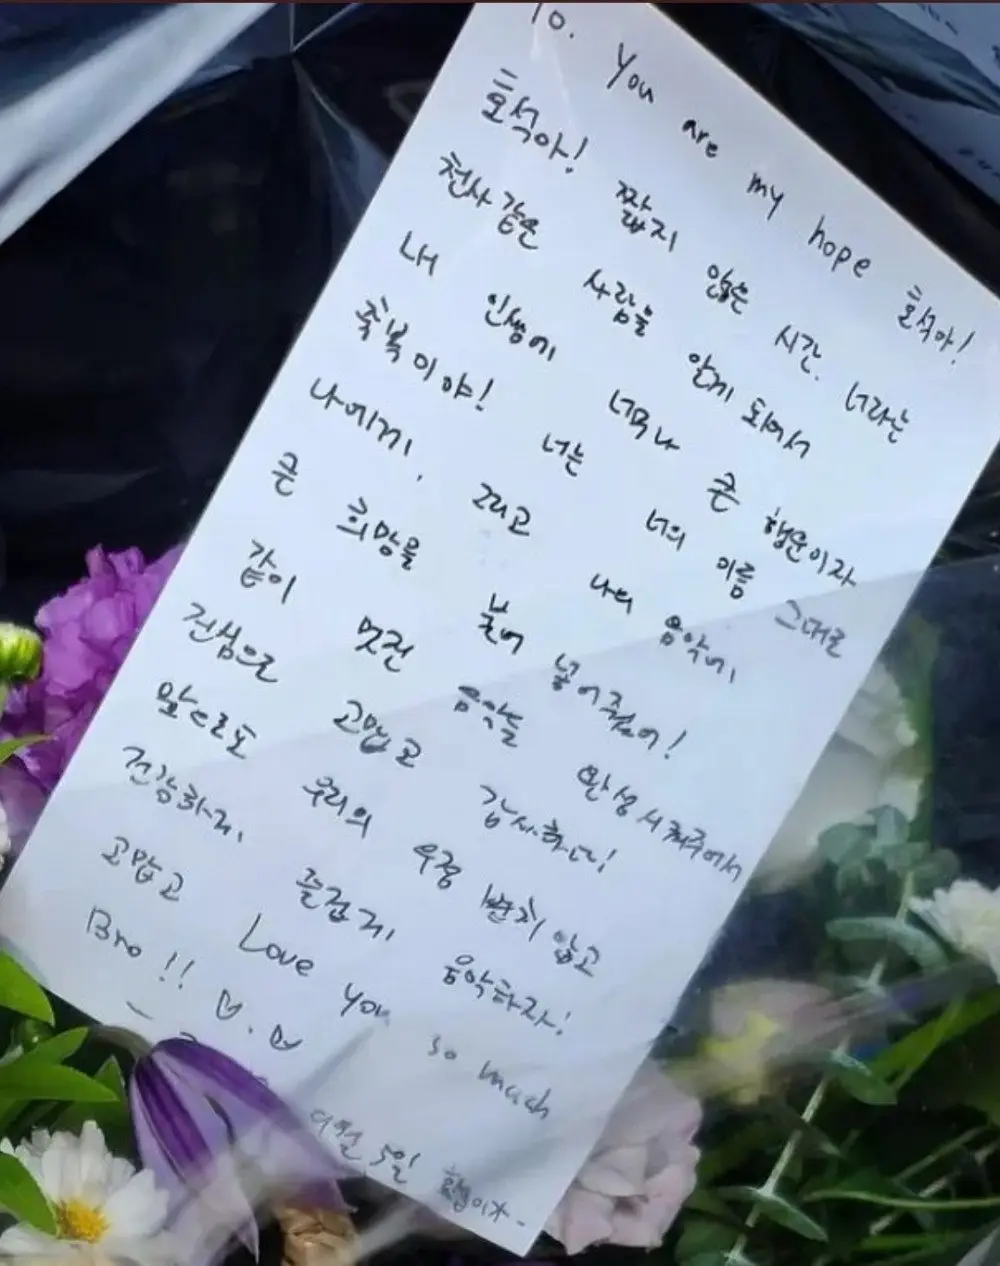 To. You are my hope 호석아!
호석아! 짧지 않은 시간. 너라는
천사 같은 사람을 알게 되어서
내 인생에 너무나 큰 행운이자
축복이야! 너는 너의 이름 그대로
나에게, 그리고 나의 음악에,
큰 희망을 불어 넣어 줬어!
같이 멋진 음악을 완성시켜주어서
진심으로 고맙고 감사하다!
앞으로도 우리의 우정 변치 않고
건강하게, 즐겁게 음악하자!
고맙고 Love you so much
Bro !! ♡.♡
5일 형이가-